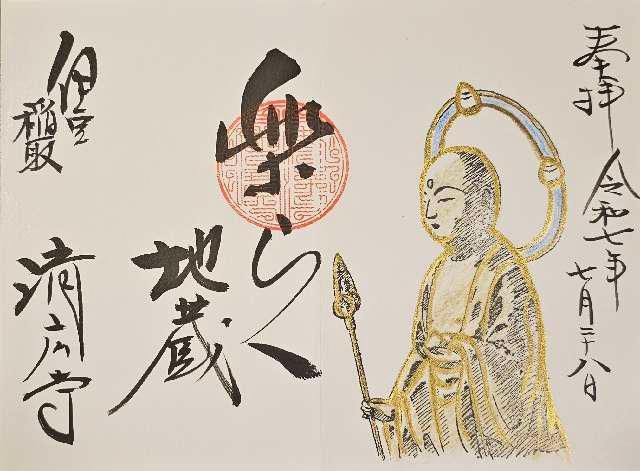 奉拝 令和七年
七月二十八日
楽らく
地蔵
伊豆
稲取
済広寺